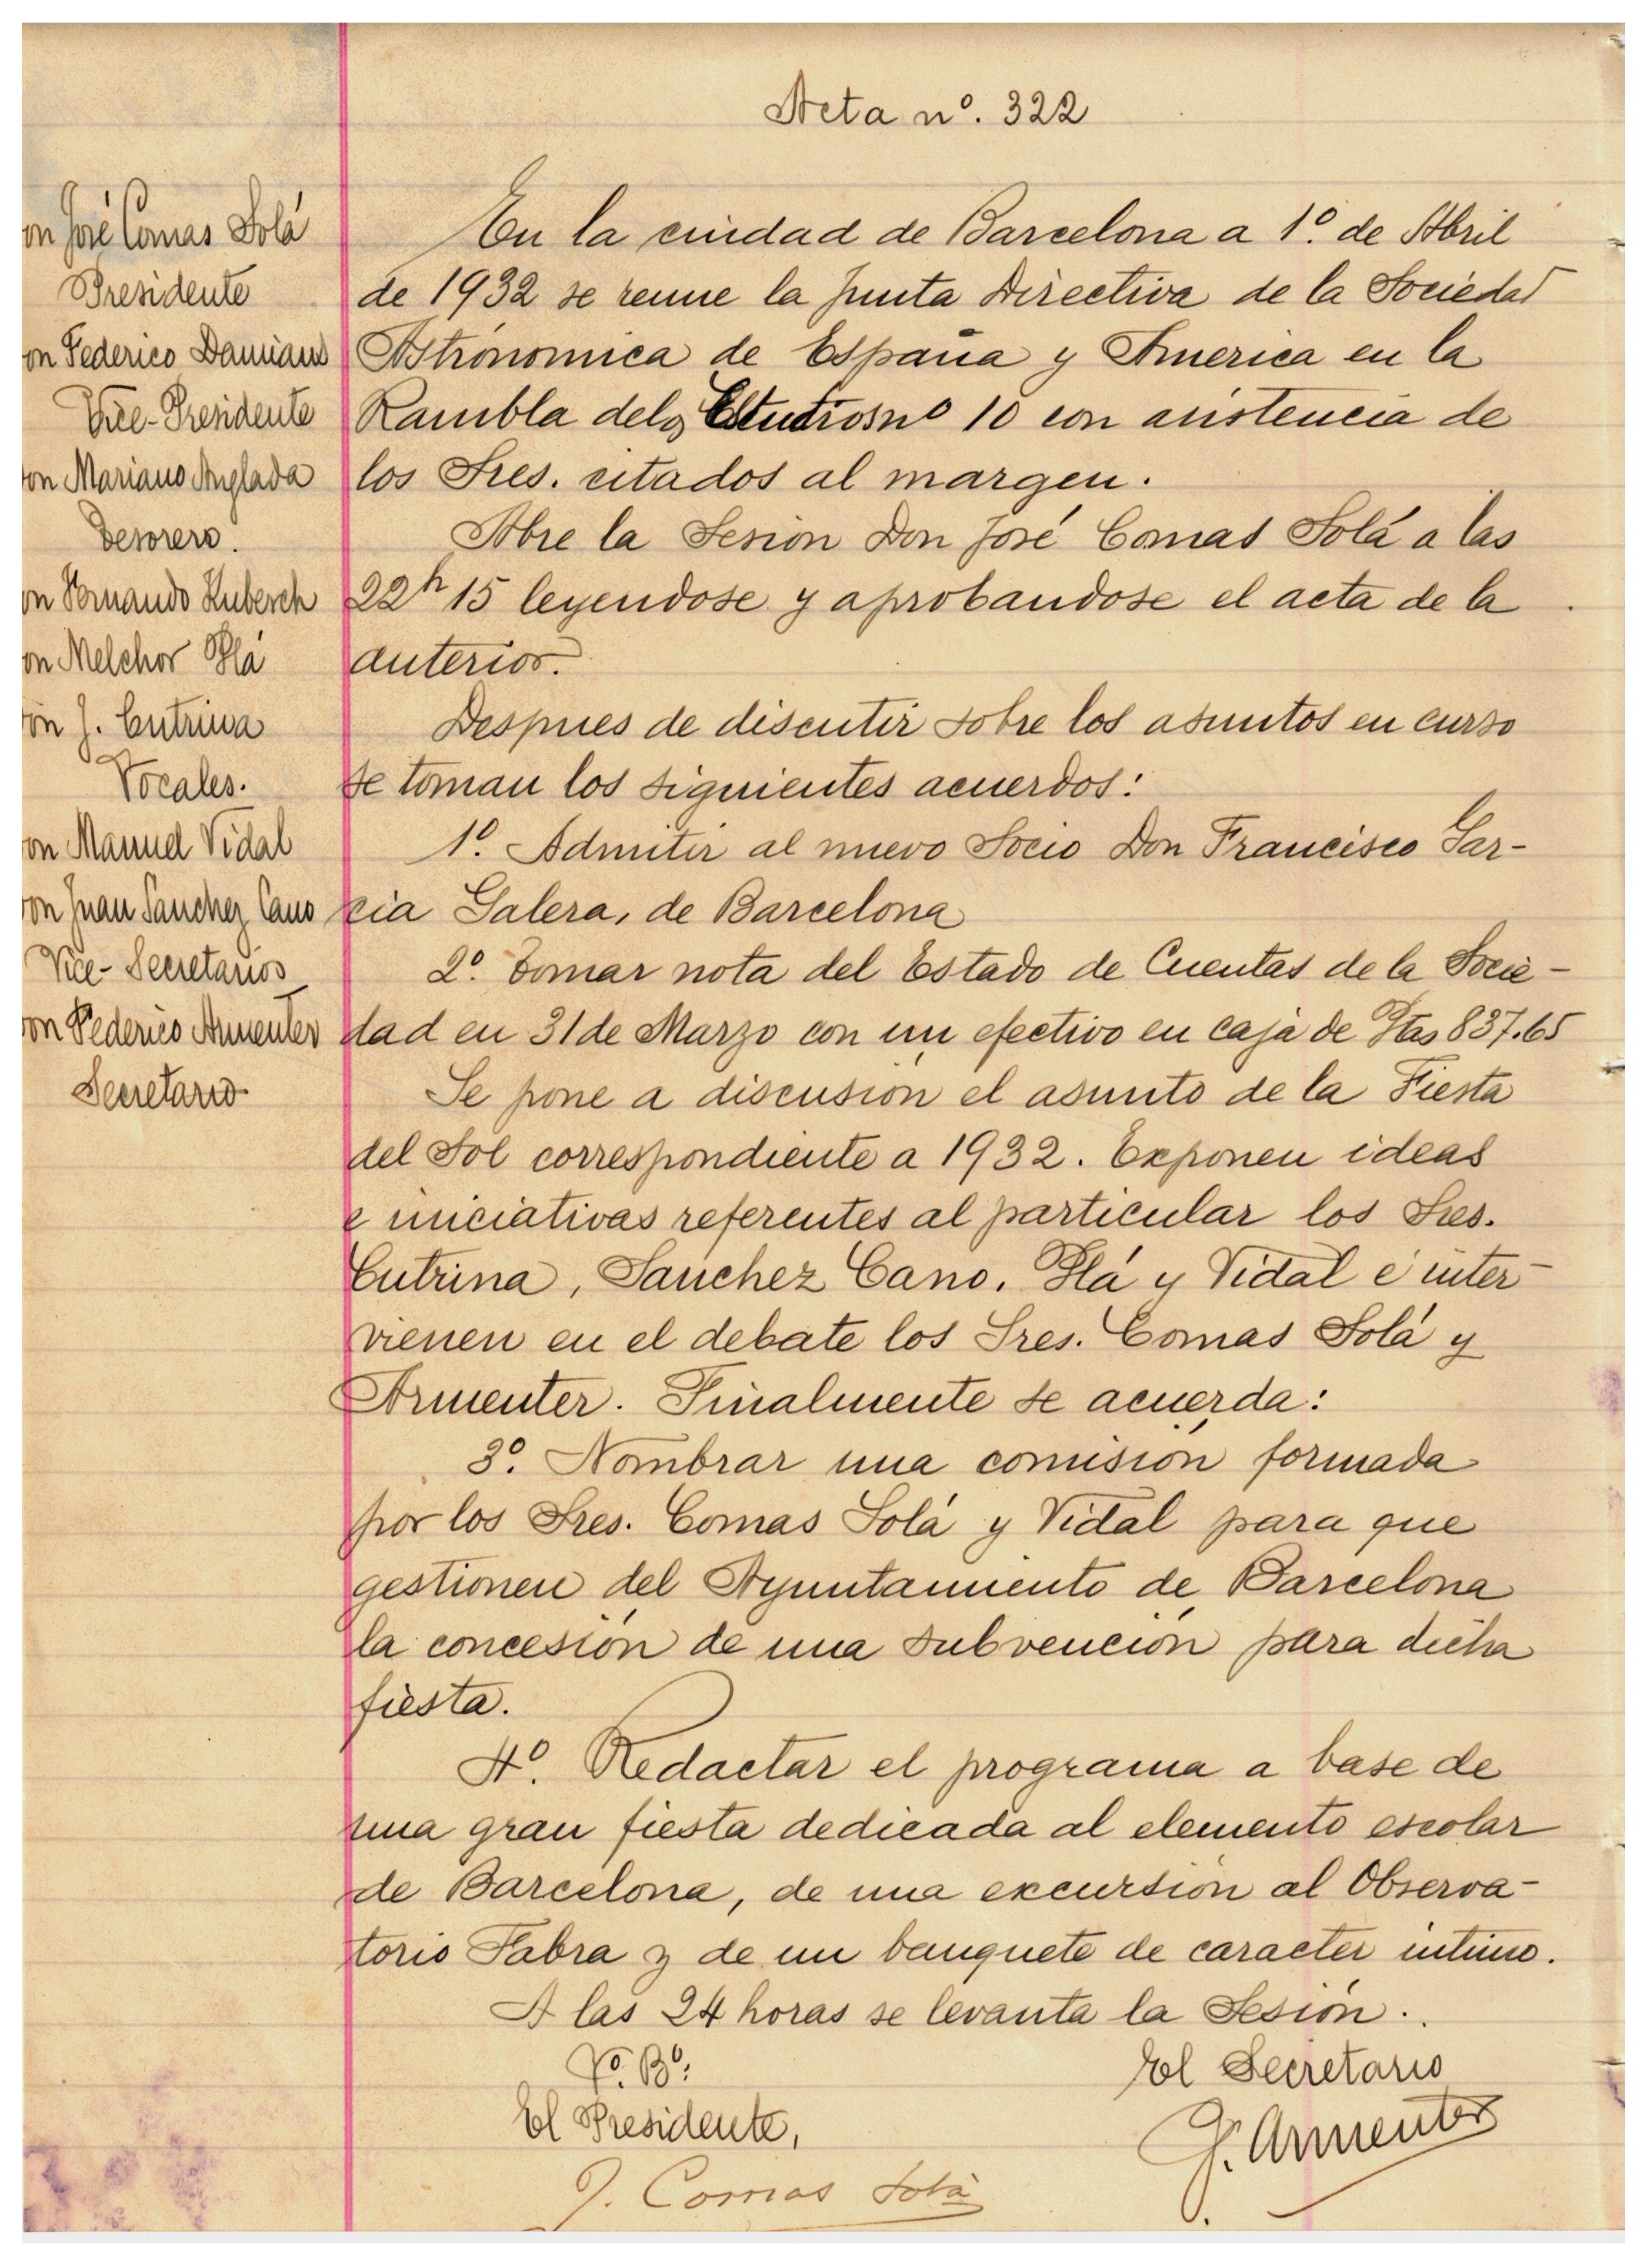 Acta nº. 322
on José Comas Solá
Presidente
on Federico Damians
Vice-Presidente
on Mariano Anglada
Tesorero.
on Fernando
on Melchor Plá
on J. Cutrina
Vocales.
on Manuel Vidal
on Juan Sanchez Cano
Vice-Secretarios
on Federico Armenter
Secretario
En la ciudad de Barcelona a 1º. de Abril
de 1932 se reune la Junta Directiva de la Sociedad
Astrónomica de España y America en la
Rambla delos Estudios nº 10 con asistencia de
los Sres. citados al margen.
Abre la Sesión Don José Comas Solá a las
22h 15 leyendose y aprobandose el acta de la
anterior.
Despues de discutir sobre los asuntos en curso
se toman los siguientes acuerdos:
1º. Admitir al nuevo Socio Don Francisco Gar-
cia Galera, de Barcelona
2º. Tomar nota del Estado de Cuentas de la Socie-
dad en 31 de Marzo con un efectivo en caja de Ptas 837.65
Se pone a discusión el asunto de la Fiesta
del Sol correspondiente a 1932. Exponen ideas
e iniciativas referentes al particular los Sres.
Cutrina, Sanchez Cano, Plá y Vidal é inter-
vienen en el debate los Sres. Comas Solá y
Armenter. Finalmente se acuerda:
3º. Nombrar una comisión formada
por los Sres. Comas Solá y Vidal para que
gestionen del Ayuntamiento de Barcelona
la concesión de una subvención para dicha
fiesta.
4º. Redactar el programa a base de
una gran fiesta dedicada al elemento escolar
de Barcelona, de una excursión al Observa-
torio Fabra y de un banquete de caracter intimo.
A las 24 horas se levanta la Sesión.
Vº. Bº:
El Presidente,
J. Comas Solá
El Secretario
F. Armenter